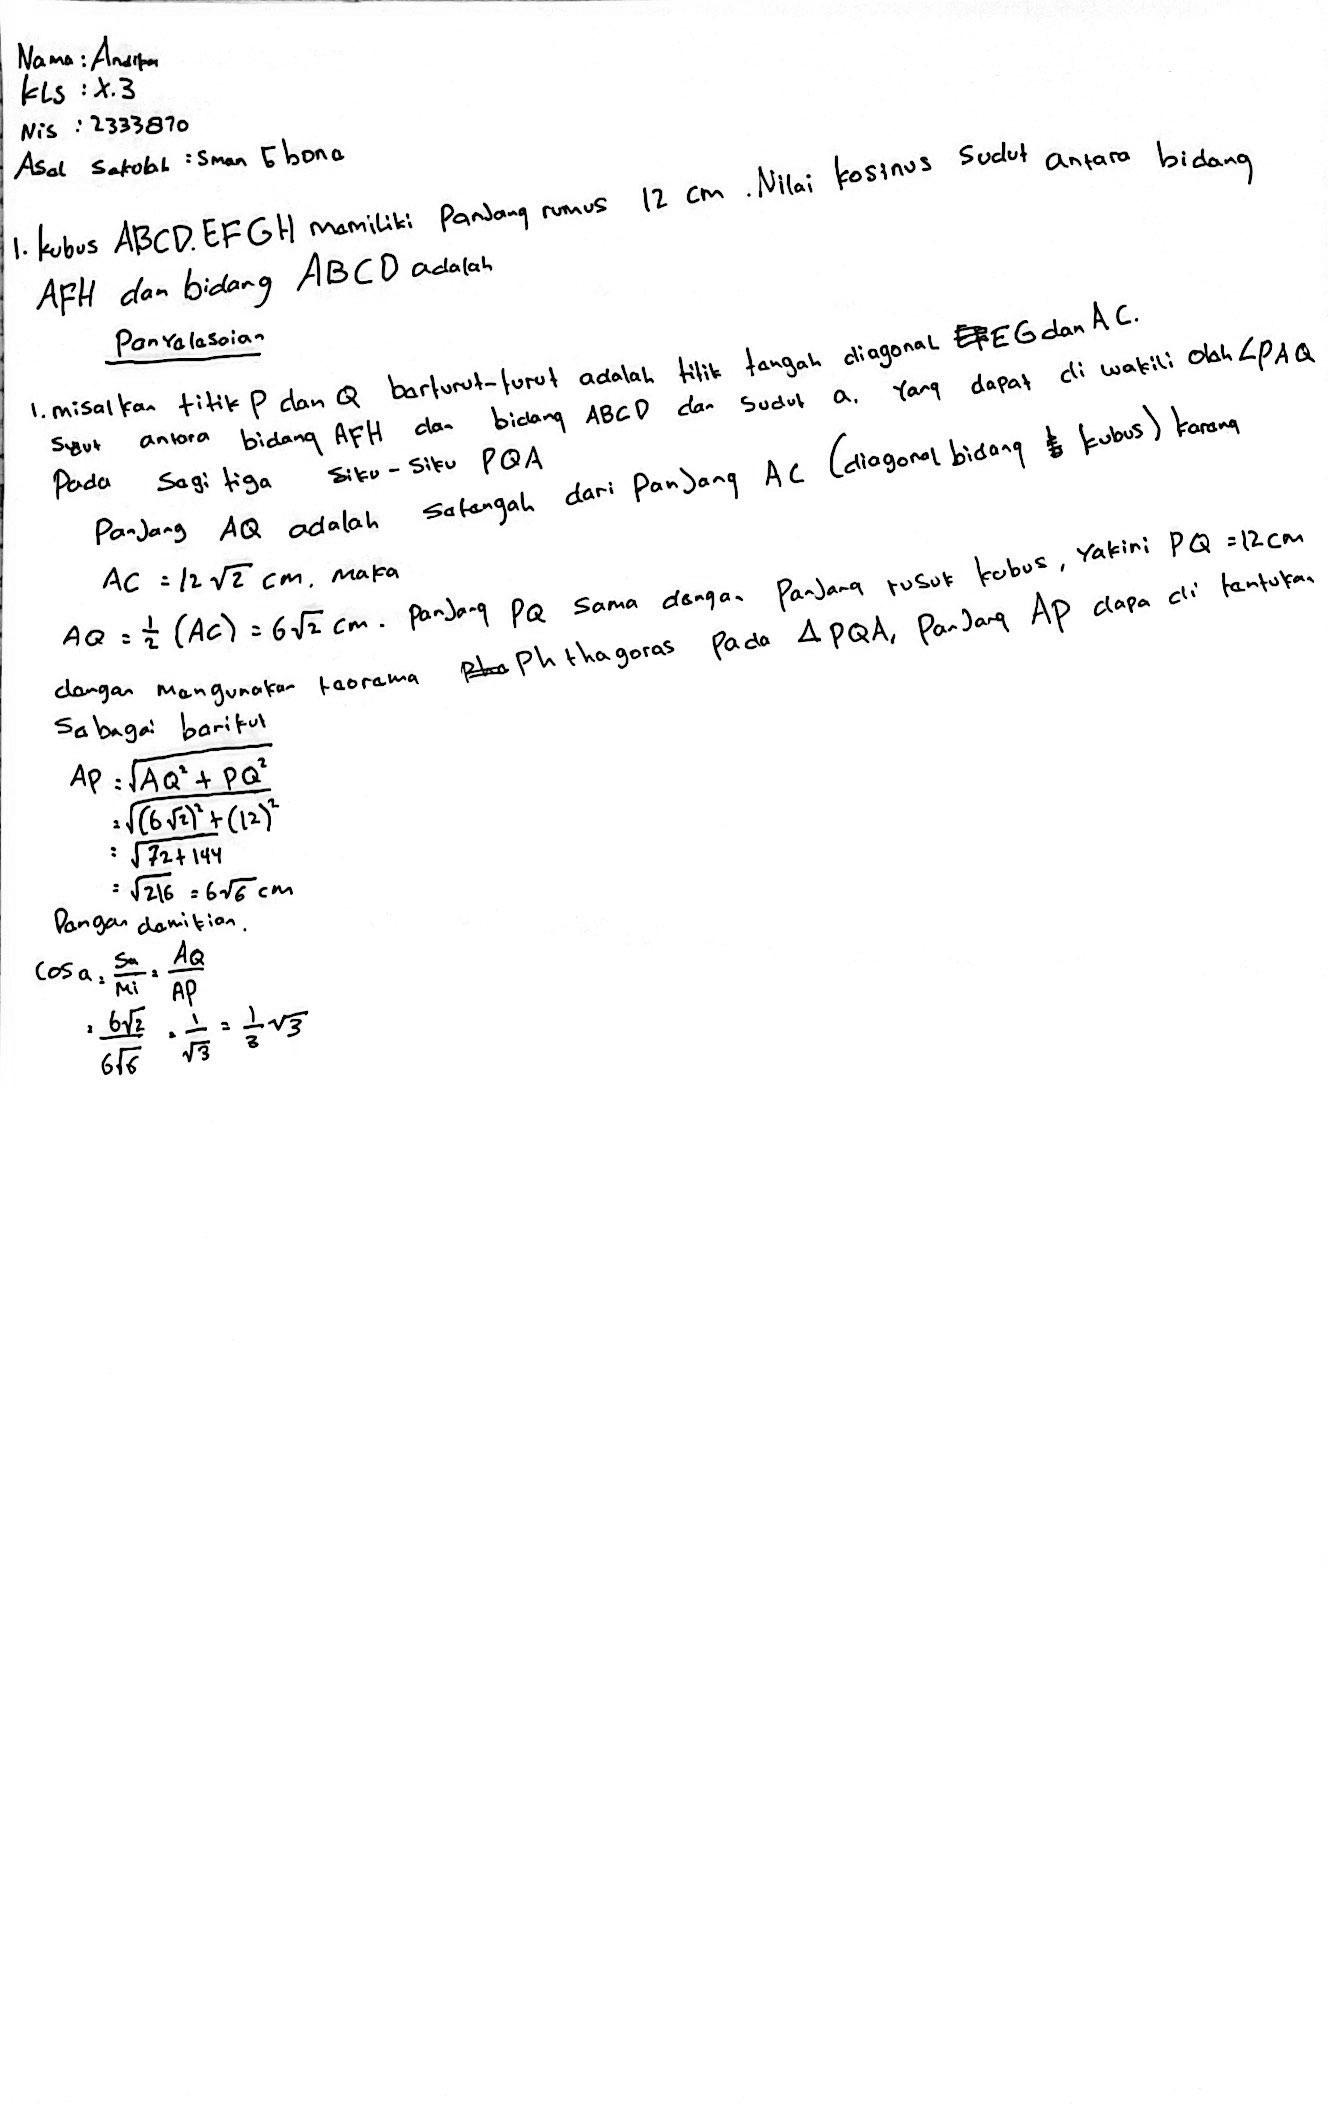 Nama : Andika
KLS : X.3
Nis : 2333870
Asal Sakolah : Sman 5 bona
1. kubus ABCD.EFGH mamiliki PanJang rumus 12 cm . Nilai kosinus Sudut antara bidang
AFH dan bidang ABCD adalah
Panyalasaian
1. misalkan titik P dan Q barturut-turut adalah titik tangah diagonal EG dan AC.
Sudut antara bidang AFH dan bidang ABCD dan Sudut a. Yang dapat di wakili olah ∠PAQ
Pada Sagi tiga Siku - Siku PQA
PanJang AQ adalah satangah dari PanJang AC (diagonal bidang kubus) karana
AC = 12√2 cm. maka
AQ = 1/2 (AC) = 6√2 cm. PanJang PQ Sama dangan PanJang rusuk kubus, Yakini PQ = 12 cm
dangan mangunakan taorama Ph thagoras Pada ΔPQA, PanJang AP dapa di tantukan
Sabagai barikut
AP = √AQ² + PQ²
= √(6√2)² + (12)²
= √72 + 144
= √216 = 6√6 cm
Dangan damikian.
Cos a = Sa/Mi = AQ/AP
= 6√2/6√6 = 1/√3 = 1/3 √3